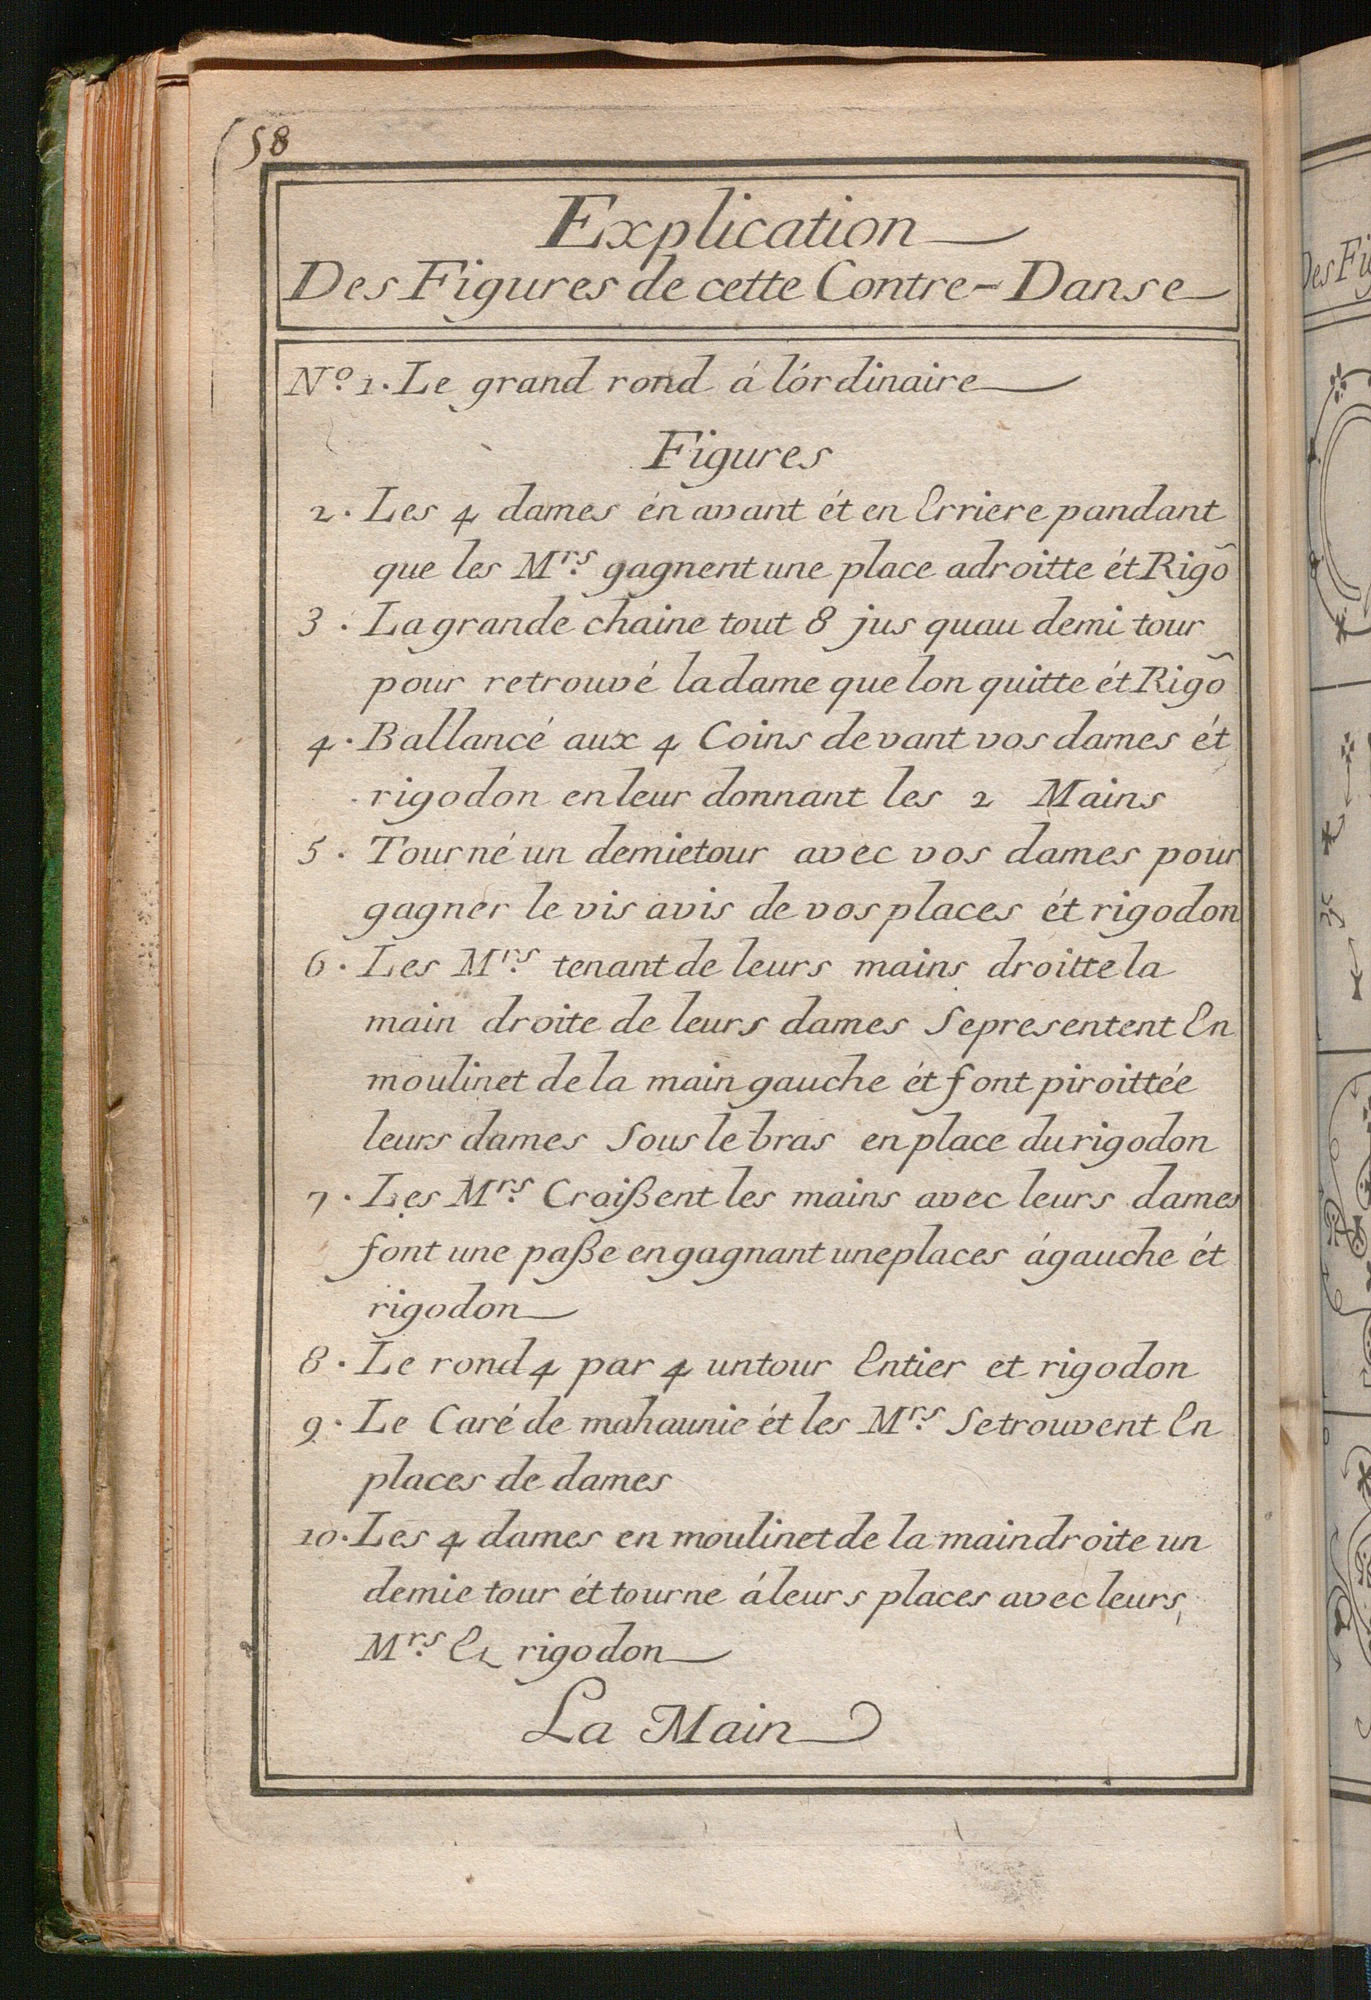 58
Explication
Des Figures de cette Contre-Danse
Nº 1. Le grand rond á lórdinaire
Figures
2. Les 4 dames én avant ét en Erriere pandant
que les Mrs. gagnent une place adroitte ét Rigõ
3. La grande chaine tout 8 jus quau demi tour
pour retrouvé la dame que lon quitte ét Rigõ
4. Ballancé aux 4 Coins devant vos dames ét
rigodon en leur donnant les 2 Mains
5. Tourné un demie tour avec vos dames pour
gagner le vis avis de vos places ét rigodon
6. Les Mrs. tenant de leurs mains droitte la
main droite de leurs dames Sepresentent En
moulinet de la main gauche ét font piroittée
leurs dames Sous le bras en place du rigodon
7. Les Mrs. Croißent les mains avec leurs dames
font une paße en gagnant une places ágauche ét
rigodon
8. Le rond 4 par 4 un tour Entier et rigodon
9. Le Caré de mahaunie ét les Mrs. Setrouvent En
places de dames
10. Les 4 dames en moulinet de la main droite un
demie tour ét tourne áleurs places avec leurs
Mrs. Et rigodon
La Main
Des Fig